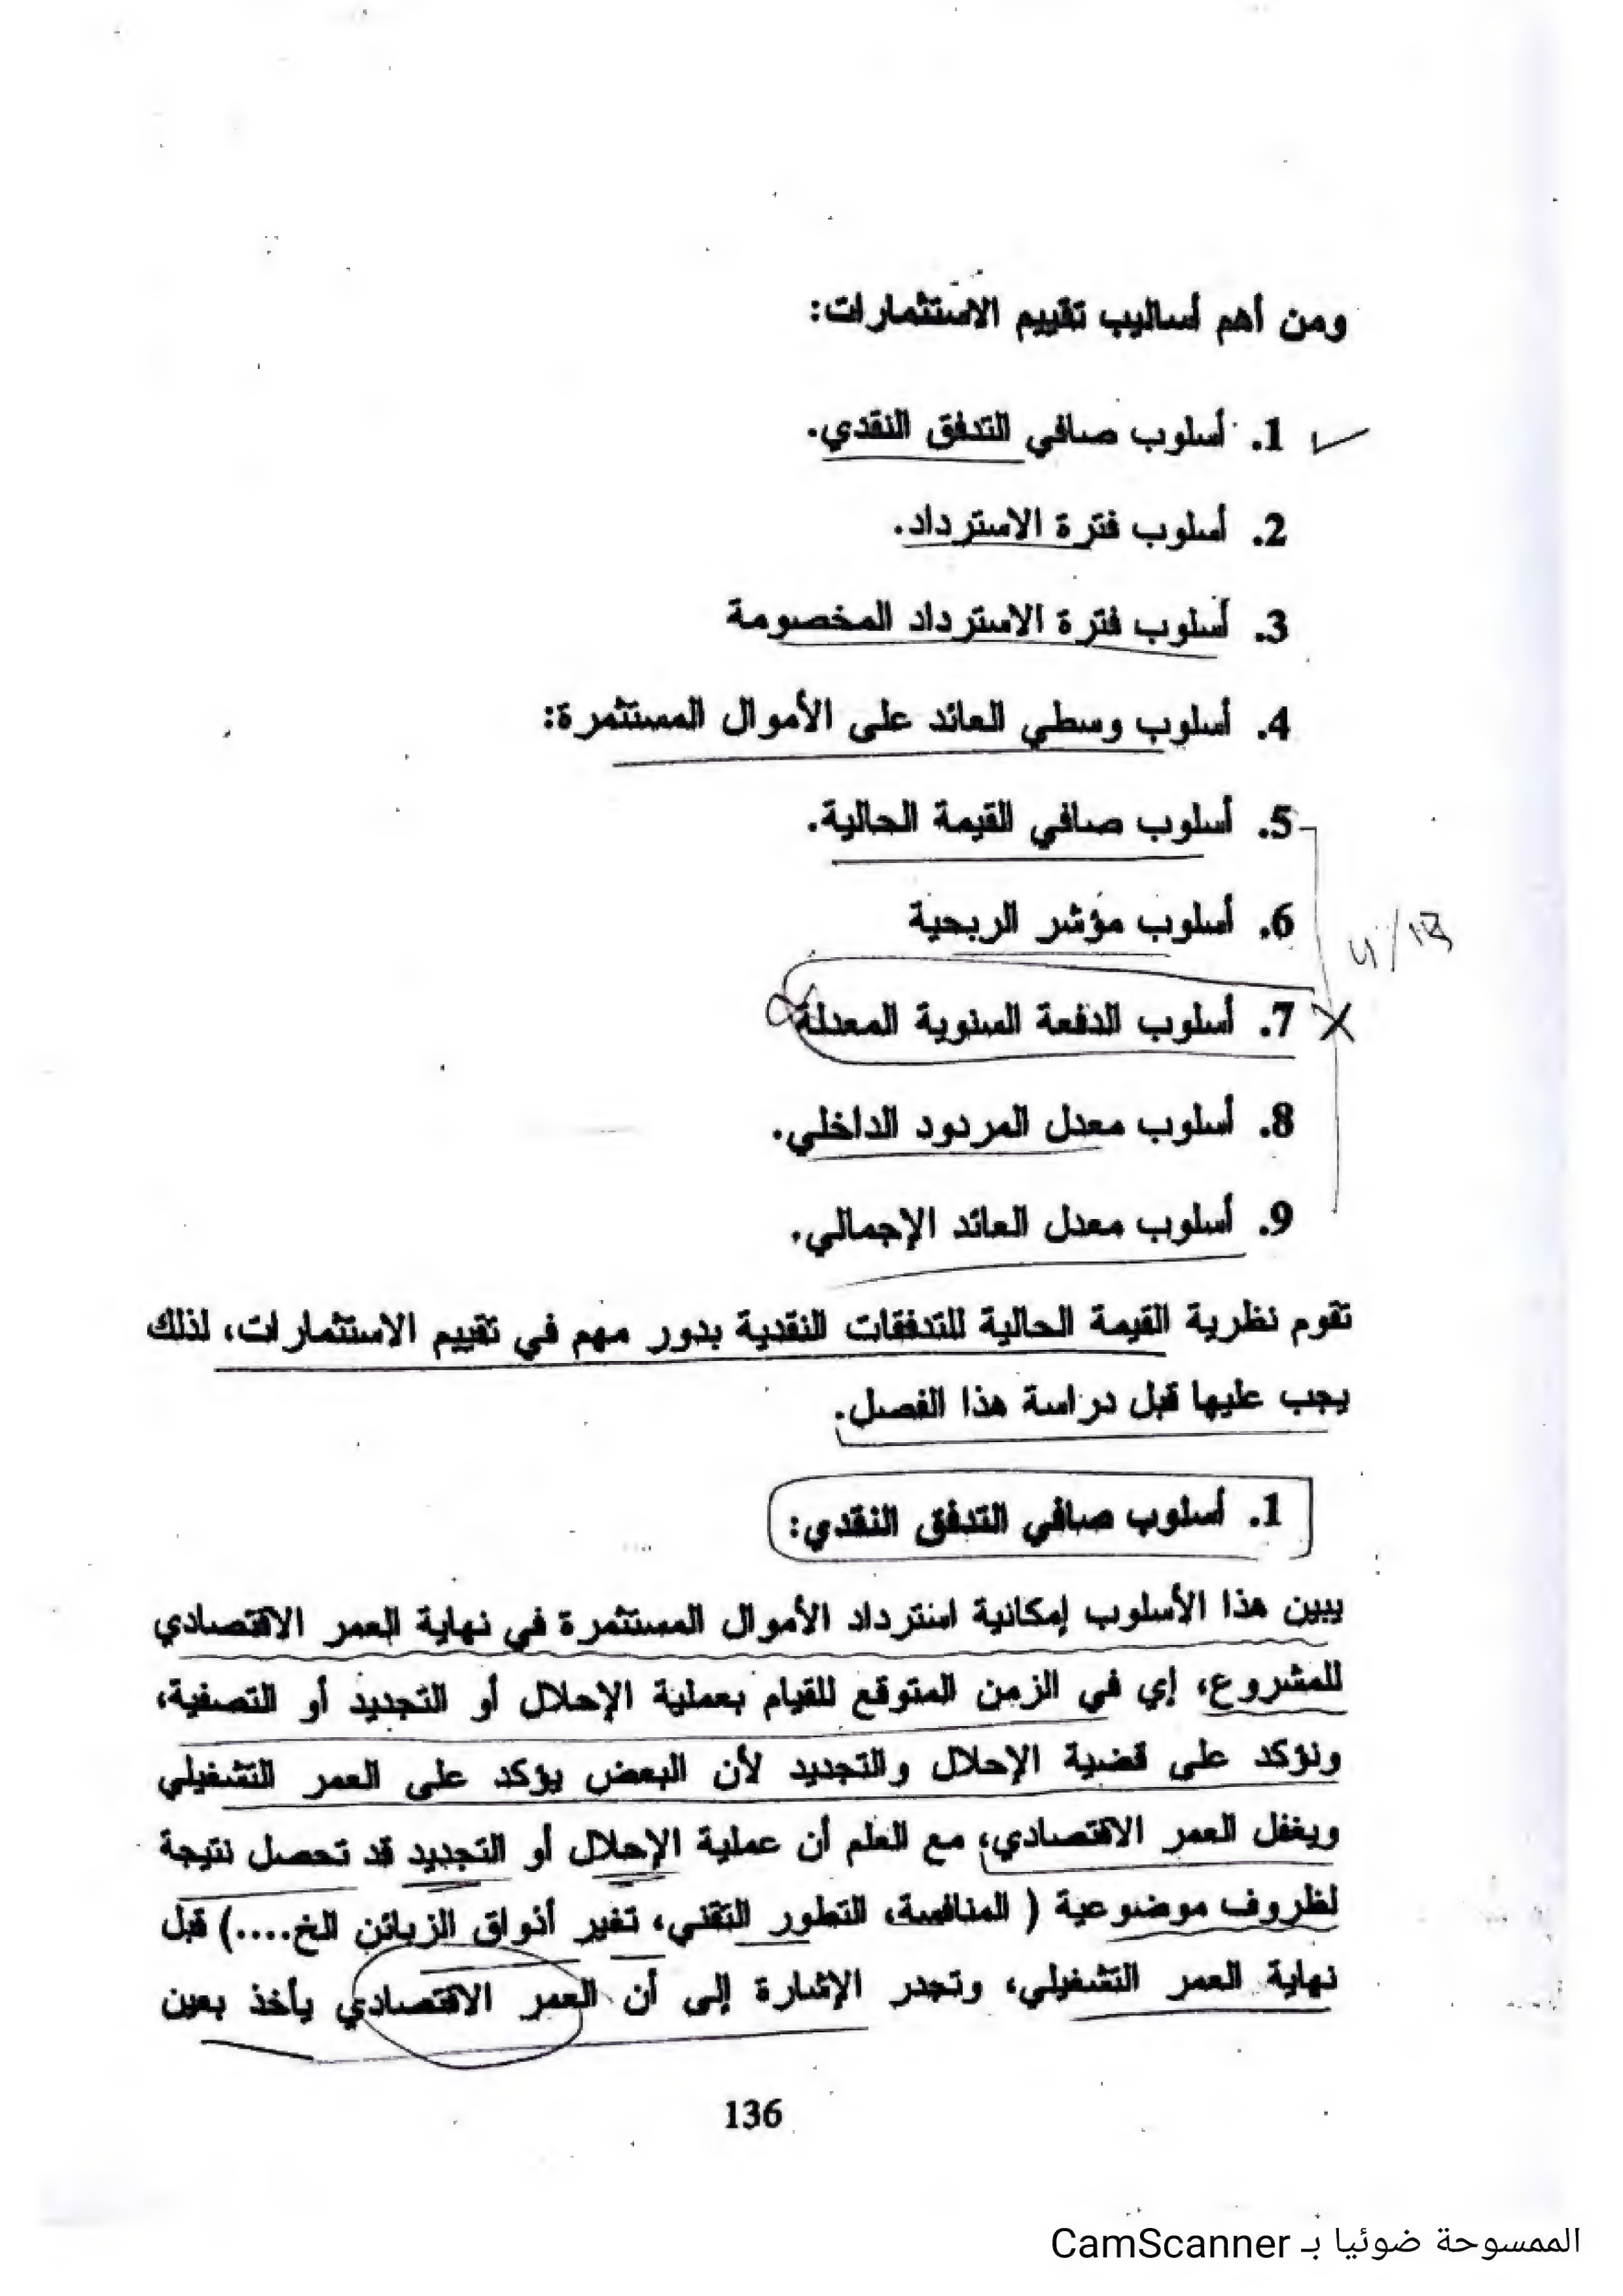 ومن أهم أساليب تقييم الاستثمارات:
1. أسلوب صافي التدفق النقدي.
2. أسلوب فترة الاسترداد.
3. أسلوب فترة الاسترداد المخصومة
4. أسلوب وسطي العائد على الأموال المستثمرة:
5. أسلوب صافي القيمة الحالية.
6. أسلوب مؤشر الربحية
7. أسلوب الدفعة السنوية المعدلة
8. أسلوب معدل المردود الداخلي.
9. أسلوب معدل العائد الإجمالي.
تقوم نظرية القيمة الحالية للتدفقات النقدية بدور مهم في تقييم الاستثمارات، لذلك
يجب عليها قبل دراسة هذا الفصل.
1. أسلوب صافي التدفق النقدي:
يبين هذا الأسلوب إمكانية استرداد الأموال المستثمرة في نهاية العمر الاقتصادي
للمشروع، إي في الزمن المتوقع للقيام بعملية الإحلال أو التجديد أو التصفية،
ونؤكد على قضية الإحلال والتجديد لأن البعض يؤكد على العمر التشغيلي
ويغفل العمر الاقتصادي، مع العلم أن عملية الإحلال أو التجديد قد تحصل نتيجة
لظروف موضوعية ( المنافسة، التطور التقني، تغير أذواق الزبائن الخ....) قبل
نهاية العمر التشغيلي، وتجدر الإشارة إلى أن العمر الاقتصادي يأخذ بعين
136
الممسوحة ضوئيا بـ CamScanner